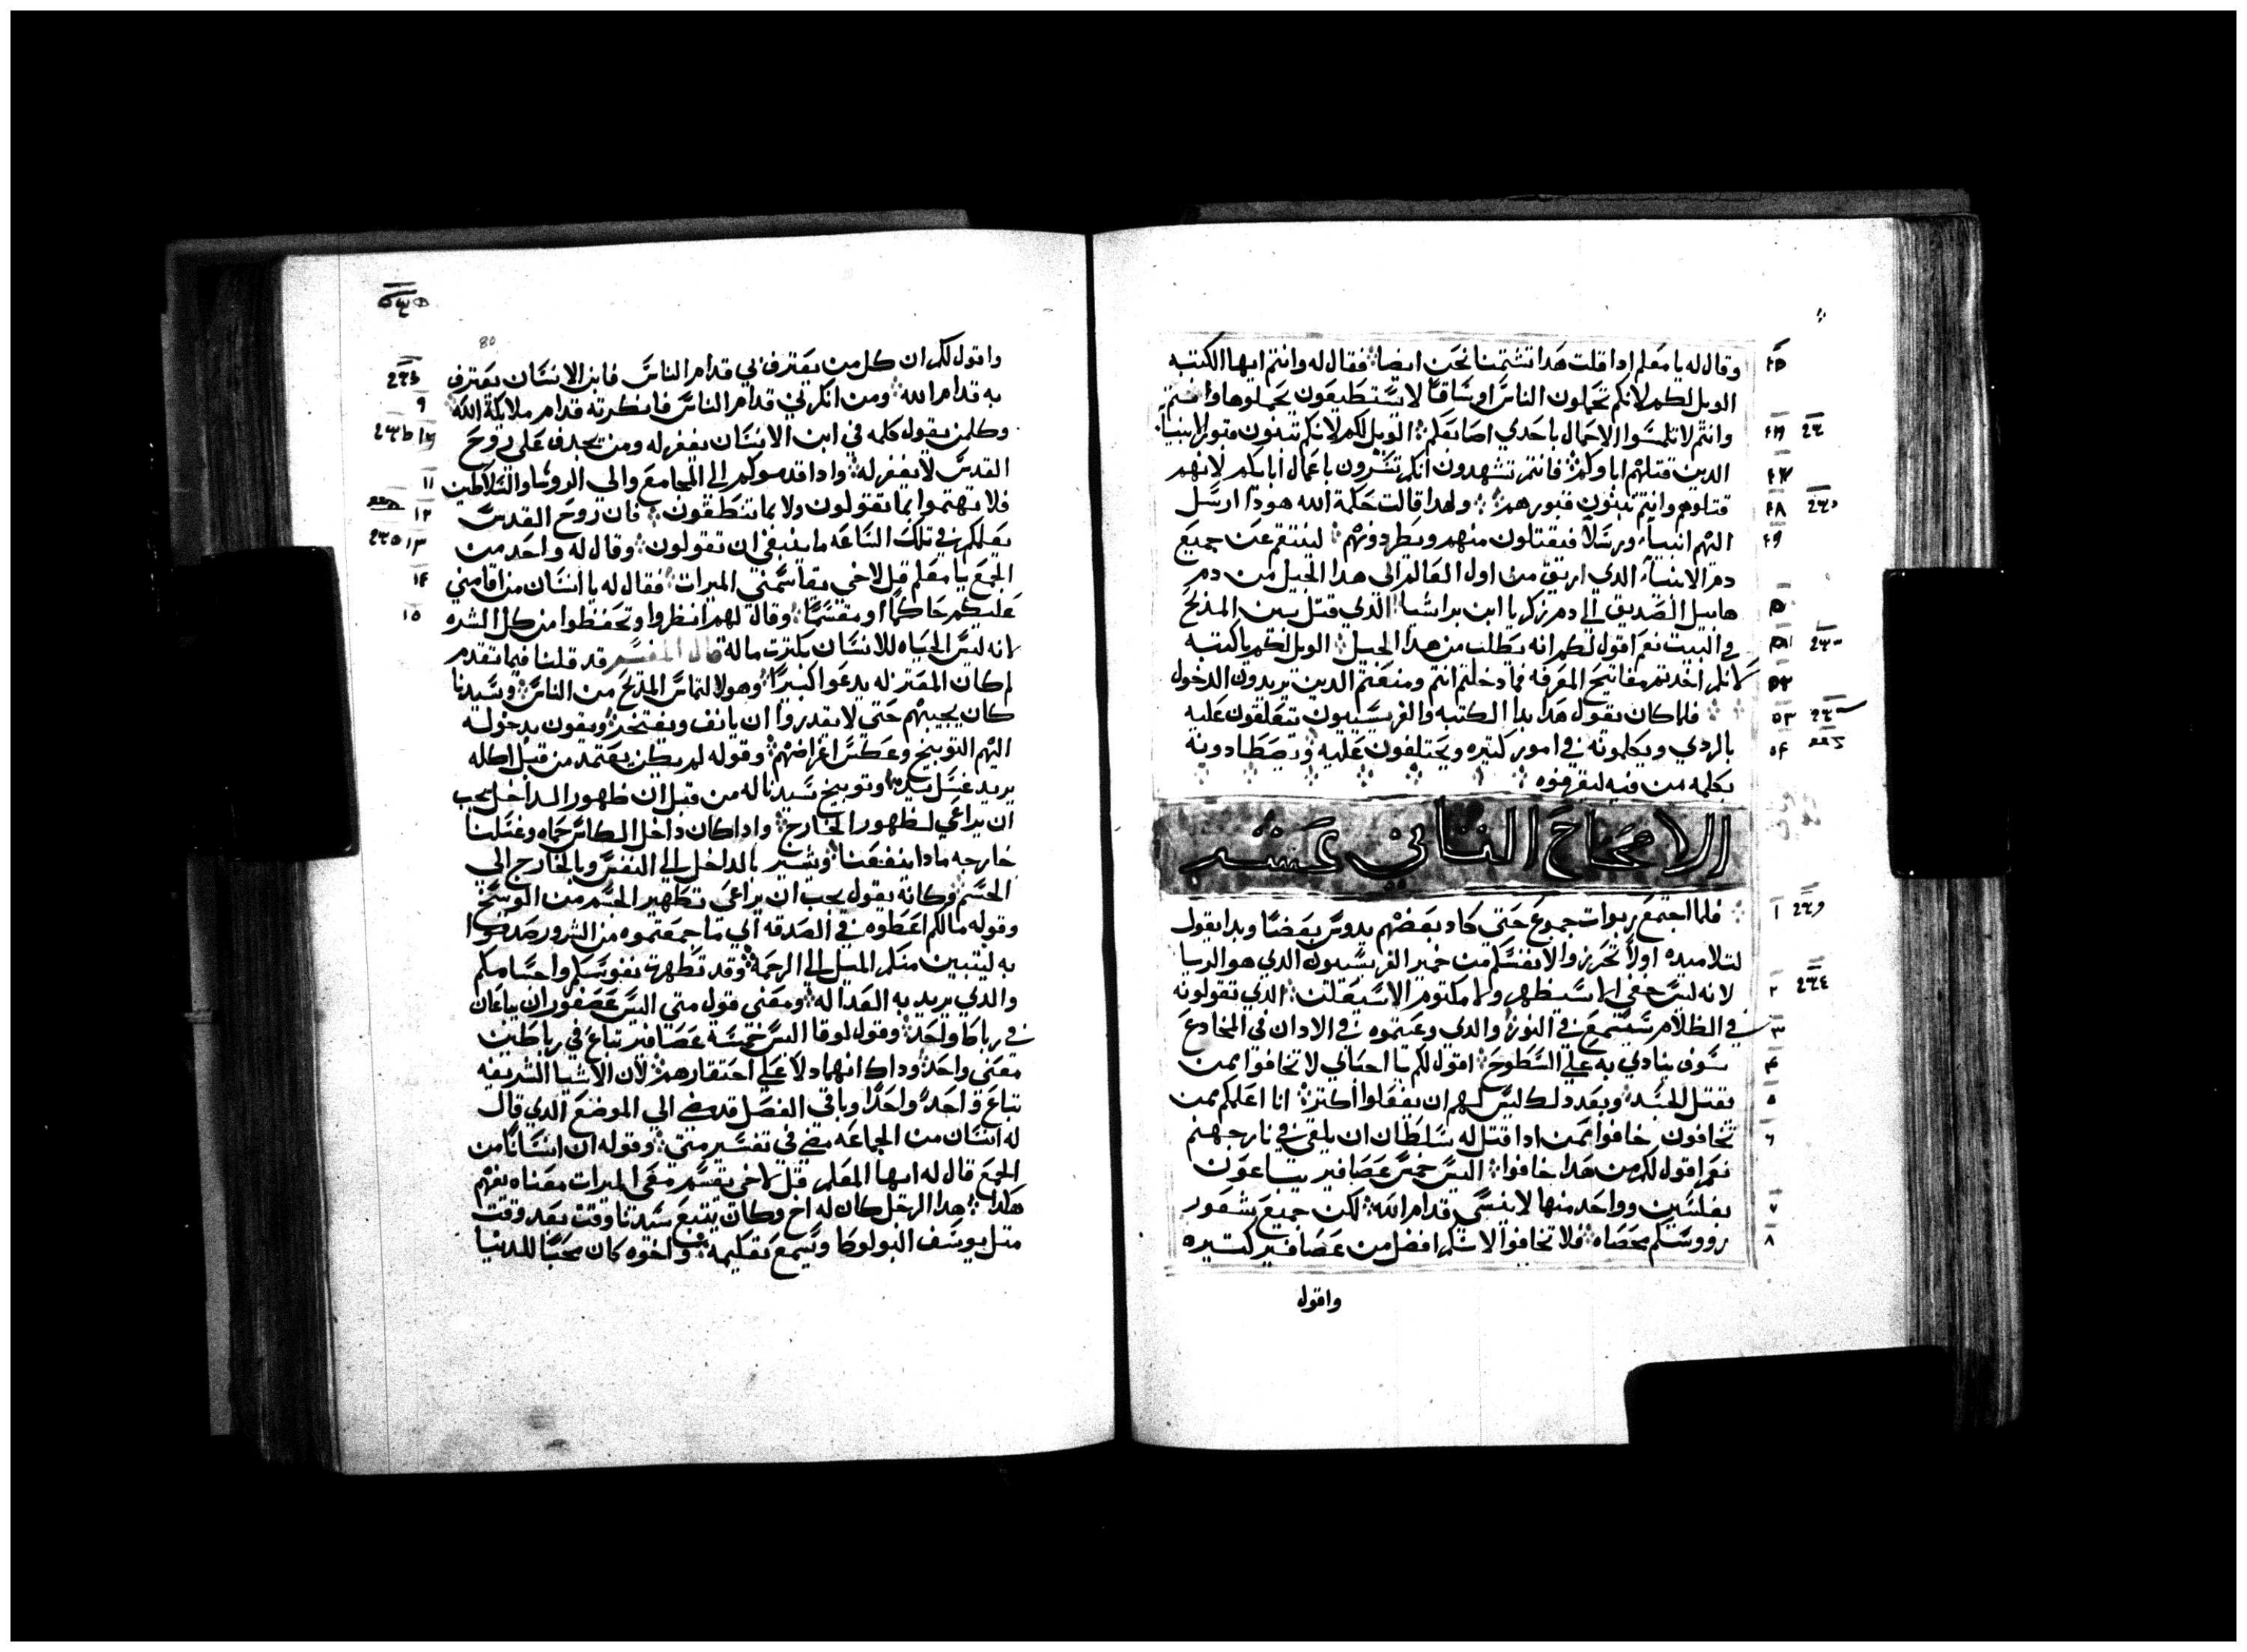 وقال له يا معلم ادا قلت هدا تشتمنا نحن ايضا فقال له وانتم ايها الكتبه
الويل لكم لانكم تحملون الناس اوساقا لا يستطيعون يحملوها
وانتم لا تلمسوا الاحمال باحدي اصابعكم الويل لكم لانكم تبنون قبور الانبيا
الدين قتلهم اباوكم فانتم تشهدون انكم تسرون باعمال ابايكم لانهم
قتلوهم وانتم تبنون قبورهم ولهدا قالت حكمة الله هودا ارسل
اليهم انبياء ورسلا فيقتلون منهم ويطردونهم لينتقم عن جميع
دم الانبياء الدي اريق من اول العالم الي هدا الجيل من دم
هابيل الصديق الي دم زكريا ابن براشيا الدي قتل بين المدبح
والبيت نعم اقول لكم انه يطلب من هدا الجيل الويل لكم يا كتبه
لانكم اخدتم مفاتيح المعرفه فما دخلتم انتم ومنعتم الدين يريدون الدخول
فلما كان يقول هدا بدا الكتبه والفريسيون تتقلقون عليه
بالردي ويكلمونه في امور كتيره ويحتلفون عليه ويصطادونه
بكلمه من فيه ليقرفوه
الاصحاح التاني عشر
فلما اجتمع ربوات جموع حتي كاد بعضهم يدوس بعضا وبدا يقول
لتلاميده اولا تحرزوا لانفسكم من خمير الفريسيون الدي هو الريا
لانه ليس خفي الا سيظهر ولا مكتوم الا سيعلن الدي تقولونه
في الظلام سيسمع في النور والدي وعيتموه في الادان في المخادع
سوف ينادي به علي السطوح اقول لكم يا احباي لا تخافوا ممن
يقتل الجسد وبعد دلك ليس لهم ان يفعلوا اكتر انا اعلمكم ممن
تخافون خافوا ممن ادا قتل له سلطان ان يلقي في نار جهنم
نعم اقول لكم من هدا خافوا اليس خمس عصافير يتباعون
بفلسين وواحد منها لا ينسي قدام الله لكن جميع شعور
رووسكم محصاه فلا تخافوا لانكم افضل من عصافير كتيره
واقول
80
واقول لكم ان كل من يعترف بي قدام الناس فابن الانسان يعترف
به قدام الله ومن انكرني قدام الناس فانكرته قدام ملايكة الله
وكلمن يقول كلمه في ابن الانسان يغفر له ومن يجدف علي روح
القدس لا يغفر له وادا قدموكم الي المجامع والي الروسا والسلاطين
فلا تهتموا بما تقولون ولا بما تنطقون فان روح القدس
يعلمكم في تلك الساعه ما ينبغي ان تقولون وقال له واحد من
الجمع يا معلم قل لاخي يقاسمني الميرات فقال له يا انسان من اقامني
عليكم حاكما او مقسما وقال لهم انظروا وتحفظوا من كل الشره
لانه ليس الحياه للانسان بكترت ماله قال المفسر قد قلنا فيما تقدم
لم كان المعتزله يدعوا كبيرا وهو لالتماس المدح من الناس وسيدنا
كان يجيبهم حتي لا يقدروا ان يانف ويفتخر ويقون بدخوله
اليهم التوبيخ وعكس اغراضهم وقوله لم يكن يعتمد من قبل اكله
يريد غسل يديه وتوبيخ سيدنا له من قبل ان ظهور الداخل يجب
ان يراعي لظهور الخارج وادا كان داخل الكاس حماه وغسلنا
خارجه مادا ينفعنا ونشير بالداخل الي النفس وبالخارج الي
الجسم وكانه يقول يجب ان يراعي تطهير الجسم من الوسخ
وقوله مالكم اعطوه في الصدقه اي ما جمعتموه من الشرور صدقوا
به ليتبين منكم الميل الي الرحمه وقد تطهرة نفوسكم واجسامكم
والدي يريد به العداله ومعني قول متي اليس عصفوران يباعان
في رباط واحد وقول لوقا اليس خمسة عصافير تباع في رباطين
معني واحد وداك انهما دلا علي احتقارهم لان الاشيا الشريفه
تباع واحدا واحدا وباقي الفصل قد مضي الي الموضع الدي قال
له انسان من الجماعه مضي في تفسير متي وقوله ان انسانا من
الجمع قال له ايها المعلم قل لاخي يقسم معي الميرات معناه يفهم
هكدا هدا الرجل كان له اخ وكان يتبع سيدنا وقت بعد وقت
متل يوسف البولوطا ويسمع تعليمه واخوه كان محبا للدنيا